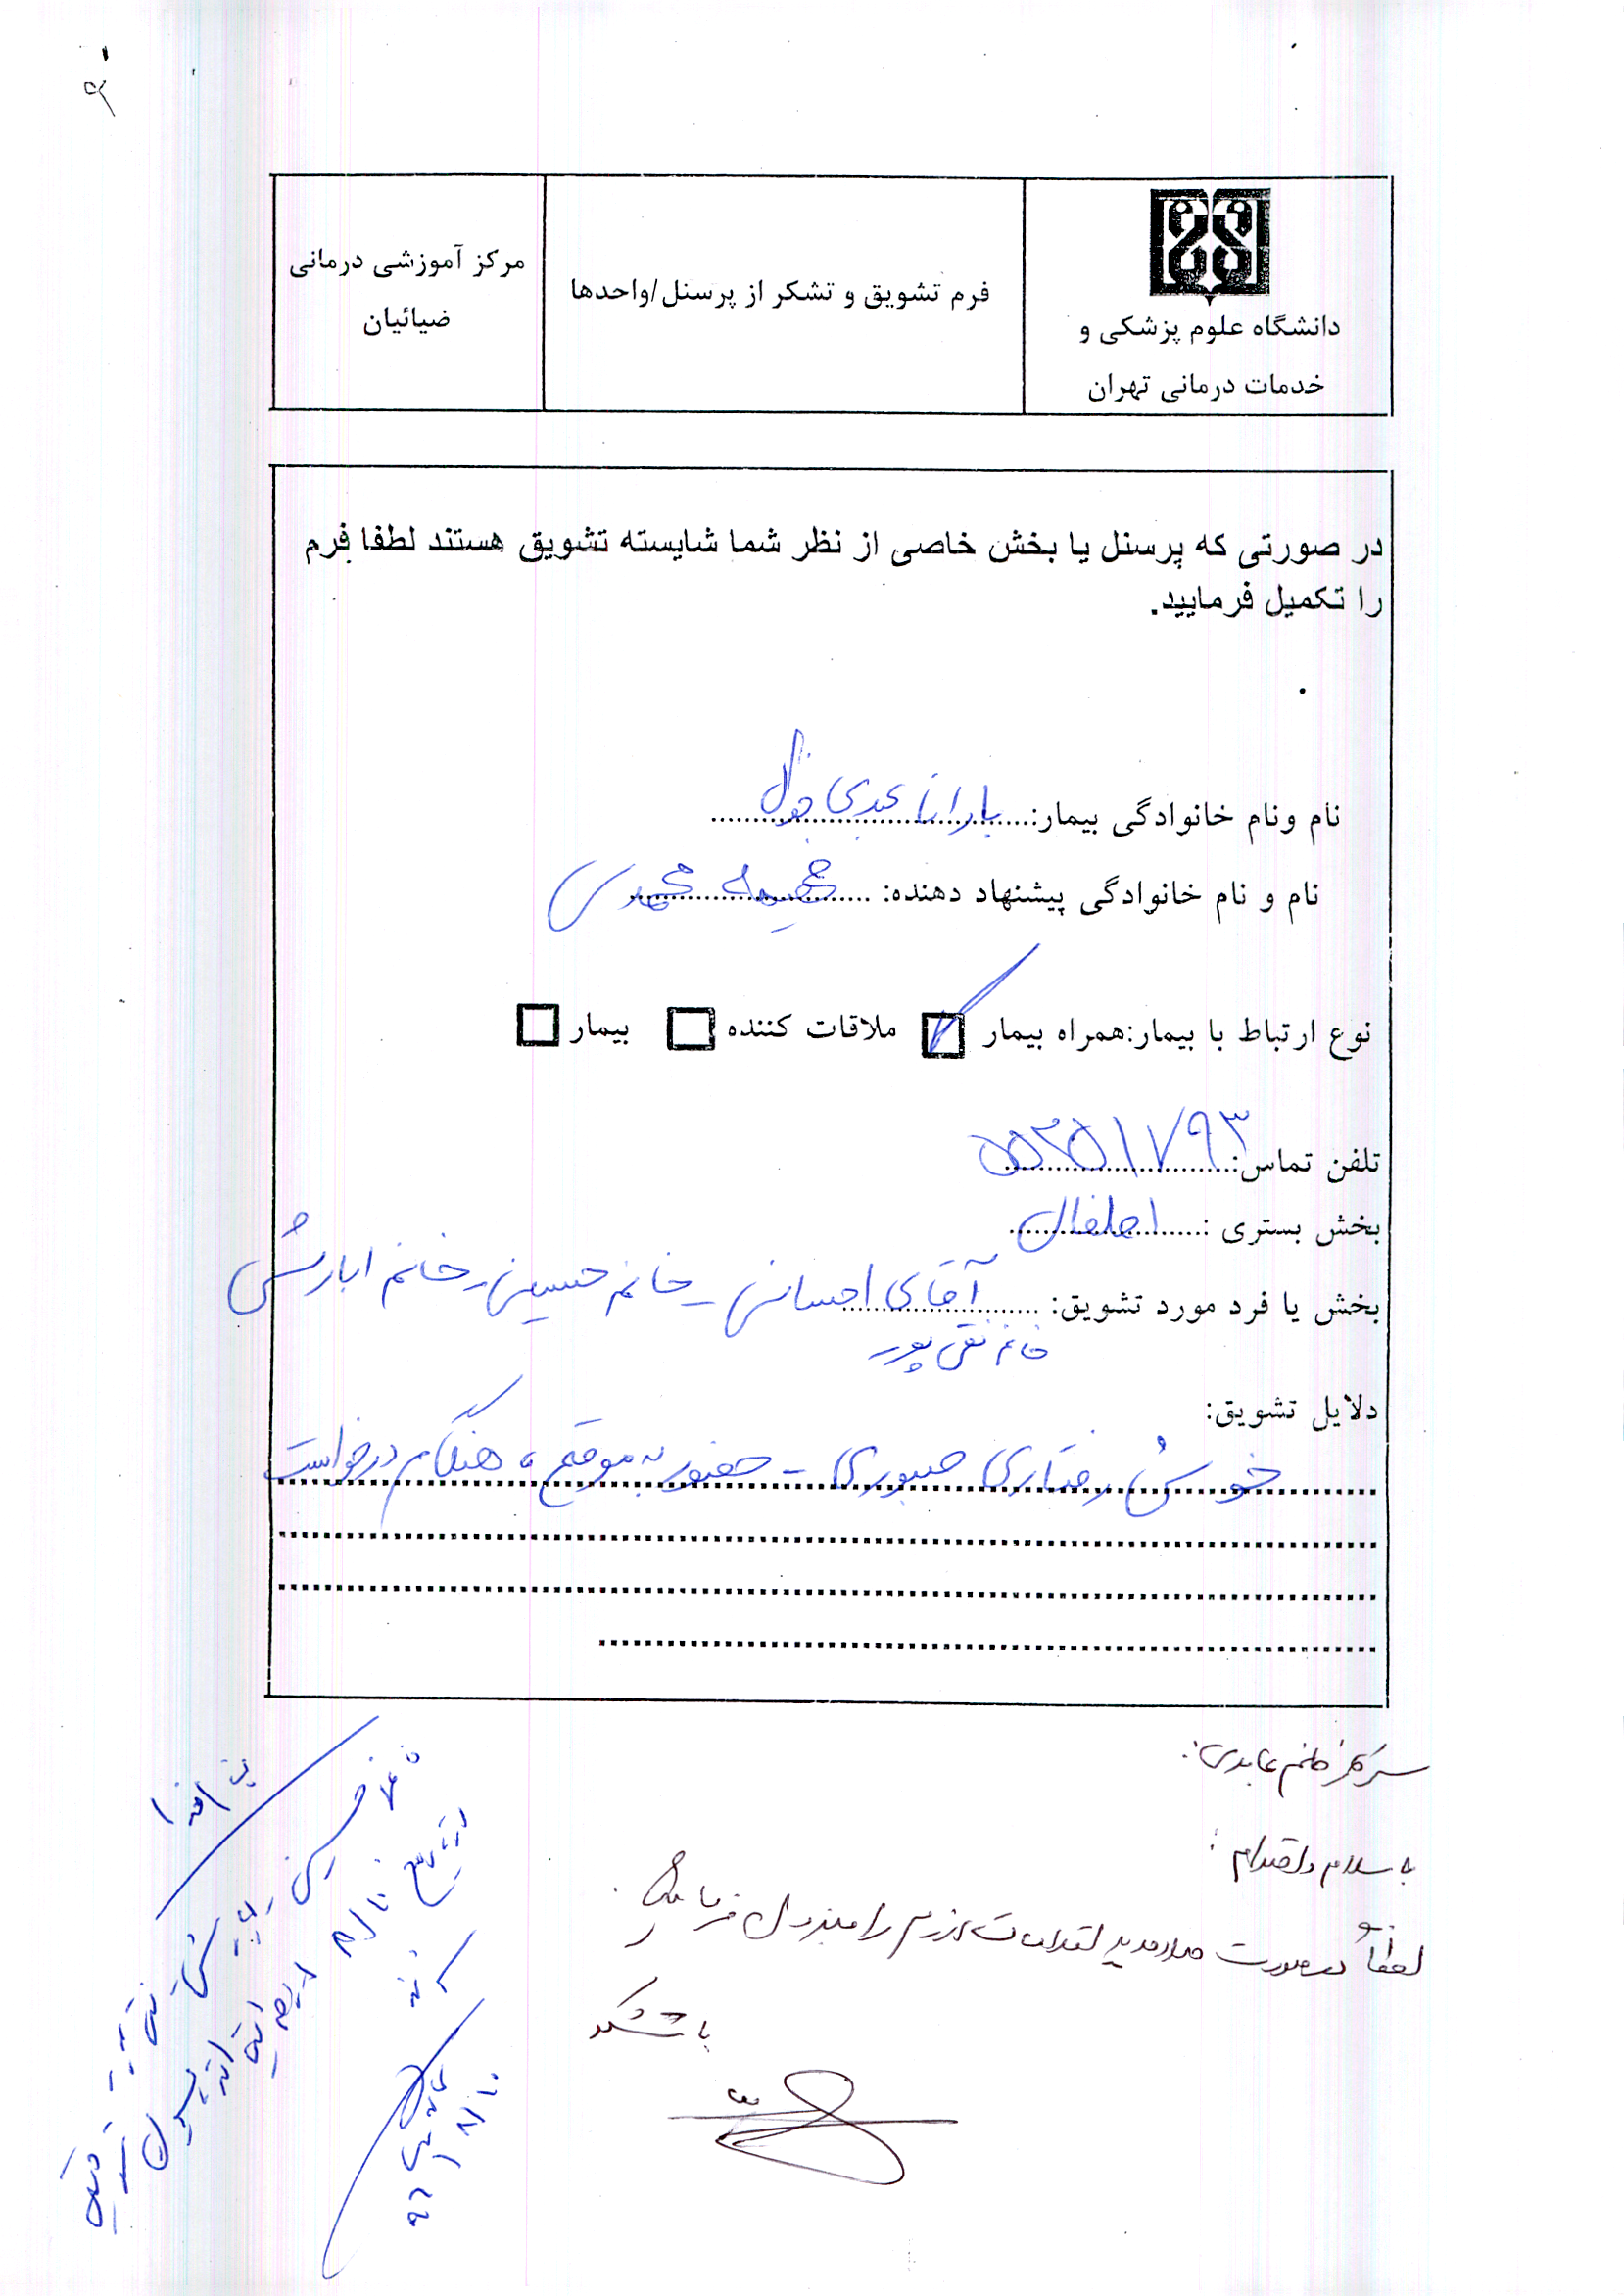 ۹
دانشگاه علوم پزشکی و
خدمات درمانی تهران
فرم تشویق و تشکر از پرسنل/واحدها
مرکز آموزشی درمانی
ضیائیان
در صورتی که پرسنل یا بخش خاصی از نظر شما شایسته تشویق هستند لطفا فرم
را تکمیل فرمایید.
نام ونام خانوادگی بیمار: بارانا عبدی
نام و نام خانوادگی پیشنهاد دهنده: فهیمه محمدی
نوع ارتباط با بیمار:همراه بیمار ملاقات کننده بیمار
تلفن تماس: ۵۵۳۵۱۷۹۳
بخش بستری : اطفال
بخش یا فرد مورد تشویق: آقای احسانی - خانم حسینی - خانم ابارشی
خانم تقی پور
دلایل تشویق:
خوش رفتاری صبوری - حضور به موقع، هنگام درخواست
سرکار خانم عابدی:
با سلام و احترام:
لطفاً در صورت صلاحدید اقدامات لازم را مبذول فرمایید.
با تشکر
خانم حسینی
۹۶/۸/۱۰